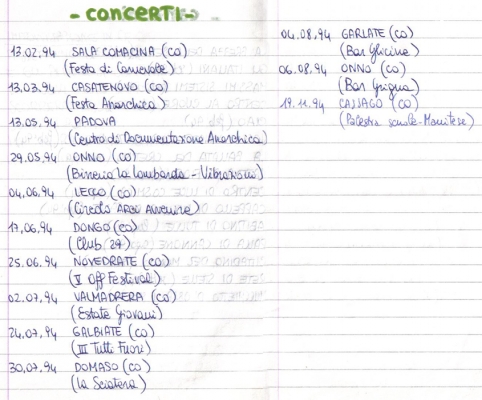 - CONCERTI -
13.02.94 SALA COMACINA (CO)
(Festa di Carnevale)
13.03.94 CASATENOVO (CO)
(Festa Anarchica)
13.05.94 PADOVA
(Centro di Documentazione Anarchica)
29.05.94 ONNO (CO)
(Birreria la Lombarda - Vibrazioni)
04.06.94 LECCO (CO)
(Circolo ARCI Avvenire)
17.06.94 DONGO (CO)
(Club 27)
25.06.94 NOVEDRATE (CO)
(V Off Festival)
02.07.94 VALMADRERA (CO)
(Estate Giovani)
24.07.94 GALBIATE (CO)
(III Tutti Fuori)
30.07.94 DOMASO (CO)
(la Sciatera)
04.08.94 GARLATE (CO)
(Bar Glicine)
06.08.94 ONNO (CO)
(Bar Grigna)
19.11.94 CASSAGO (CO)
(Palestra scuole - Manitese)